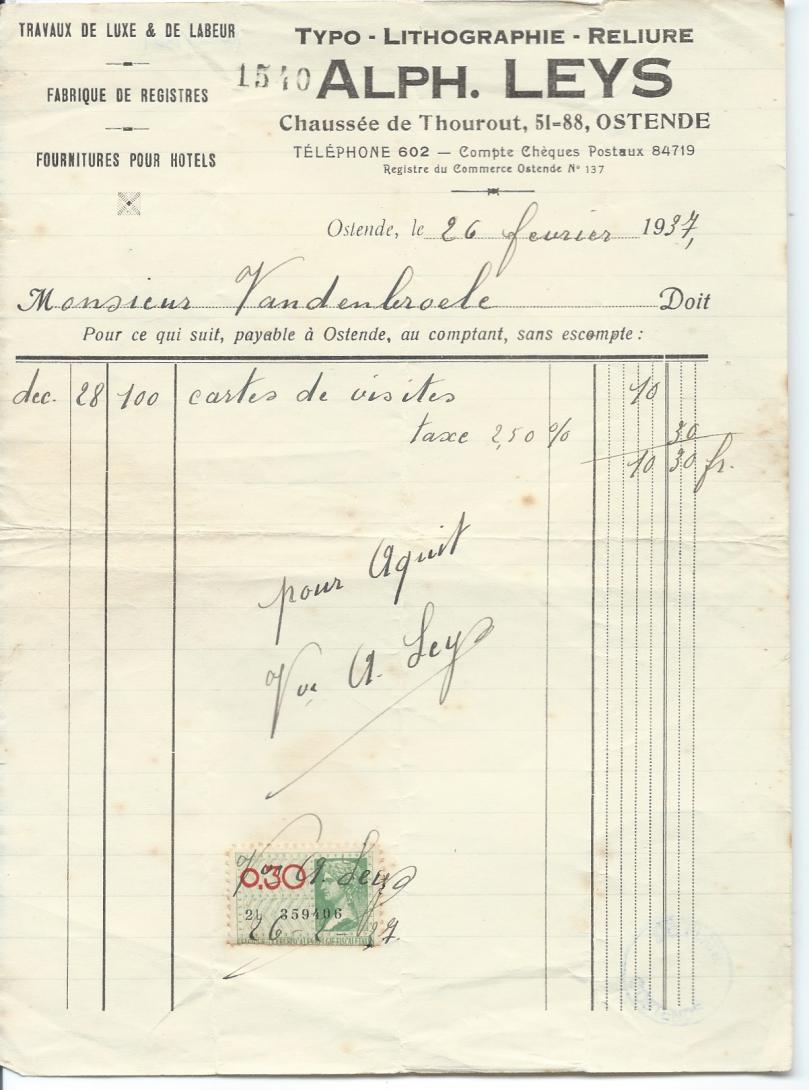 TRAVAUX DE LUXE & DE LABEUR
FABRIQUE DE REGISTRES
FOURNITURES POUR HOTELS
1540
TYPO - LITHOGRAPHIE - RELIURE
ALPH. LEYS
Chaussée de Thourout, 51-88, OSTENDE
TÉLÉPHONE 602 — Compte Chèques Postaux 84719
Registre du Commerce Ostende N° 137
Ostende, le 26 fevrier 1937,
Monsieur Vandenbroele Doit
Pour ce qui suit, payable à Ostende, au comptant, sans escompte :
dec. 28 100 cartes de visites 10
taxe 2,50 % 30
10 30 fr.
pour Aquit
Vve A. Leys
0.30
Vve A. Leys
21 359406
26-2-37